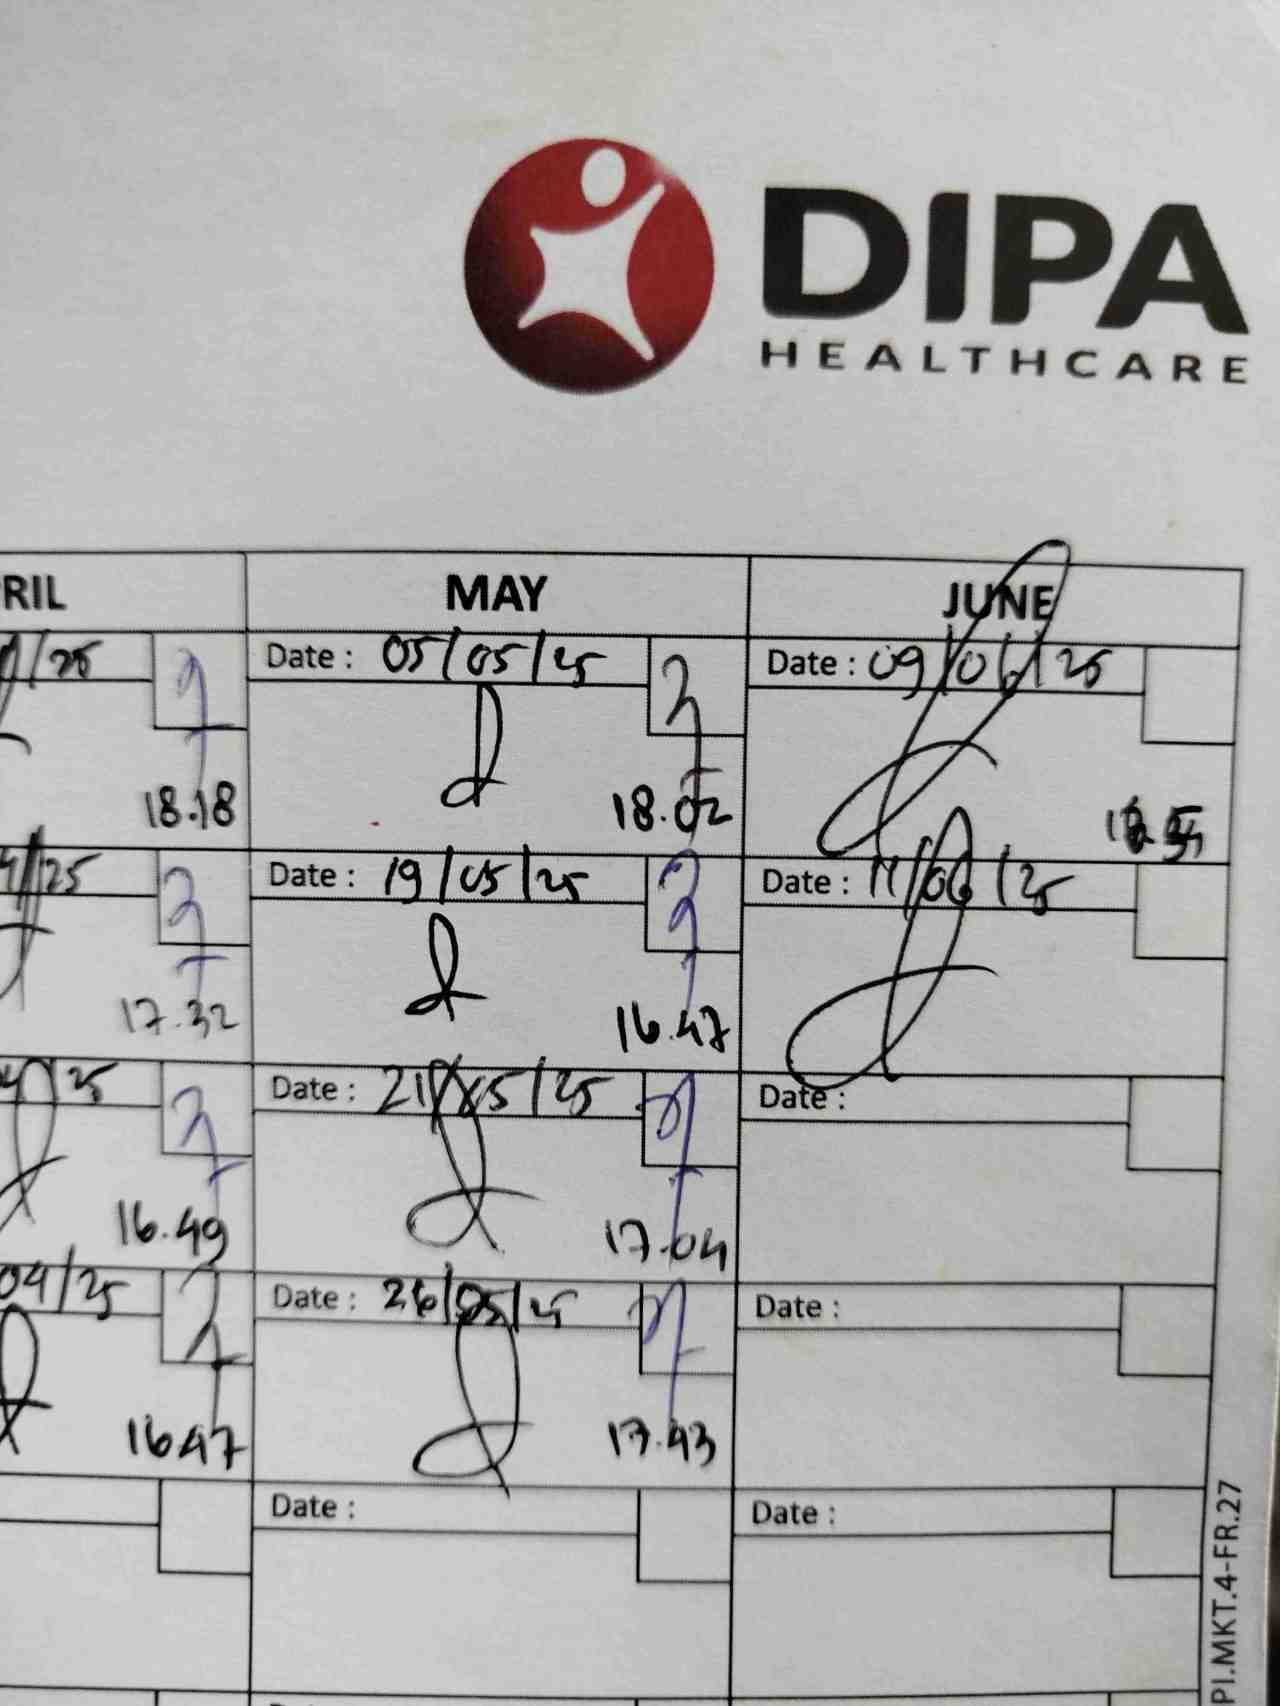 DIPA
HEALTHCARE
RIL MAY JUNE
/25 Date : 05/05/25 Date : 09/06/25
18.18 18.02
/25 Date : 19/05/25 Date : 11/06/25
17.32 16.47
/25 Date : 21/05/25 Date :
16.49 17.04
04/25 Date : 26/05/25 Date :
16.47 17.43
Date : Date :
PI.MKT.4-FR.27